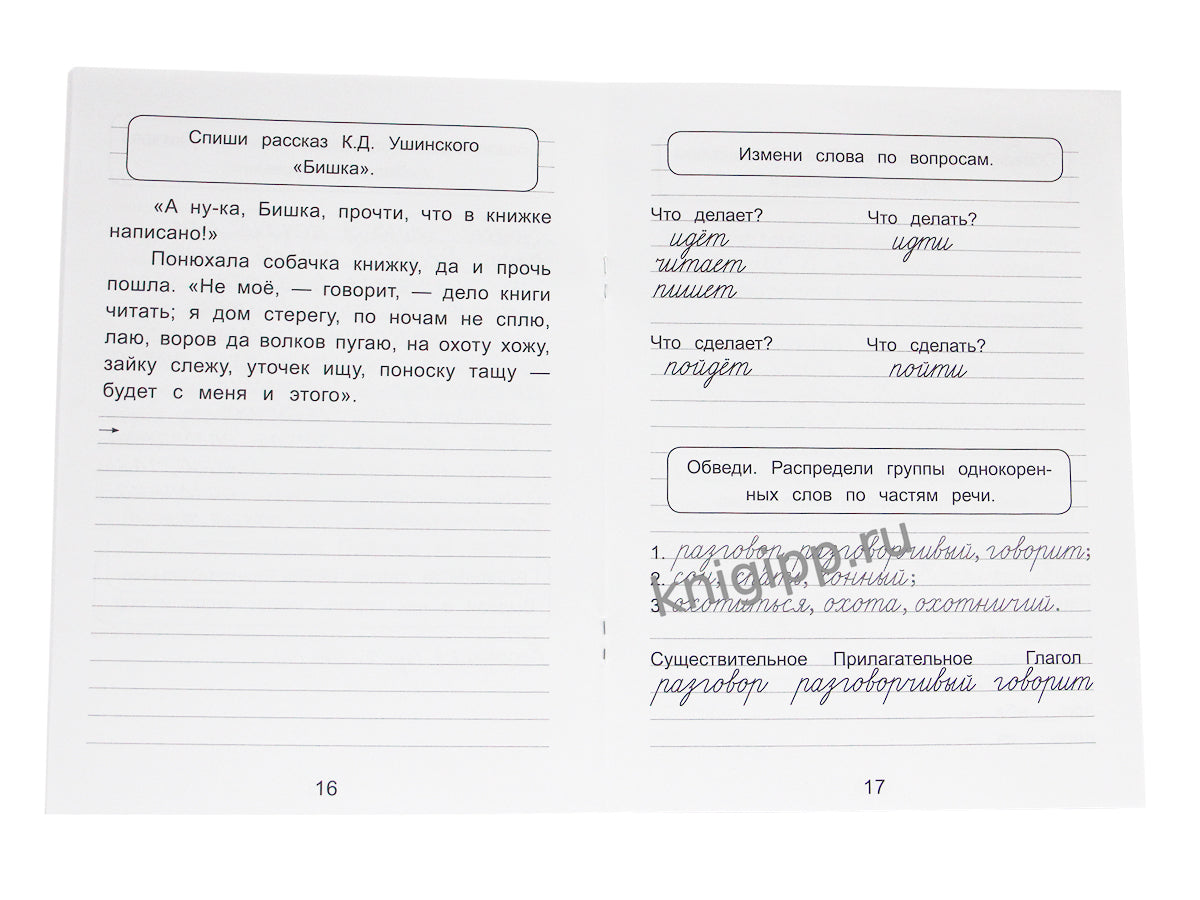 Спиши рассказ К.Д. Ушинского
«Бишка».
«А ну-ка, Бишка, прочти, что в книжке
написано!»
Понюхала собачка книжку, да и прочь
пошла. «Не моё, — говорит, — дело книги
читать; я дом стерегу, по ночам не сплю,
лаю, воров да волков пугаю, на охоту хожу,
зайку слежу, уточек ищу, поноску тащу —
будет с меня и этого».
16
Измени слова по вопросам.
Что делает? Что делать?
идёт идти
читает
пишет
Что сделает? Что сделать?
пойдёт пойти
Обведи. Распредели группы однокорен-
ных слов по частям речи.
1. разговор, разговорчивый, говорит;
2. сон, спать, сонный;
3. охотиться, охота, охотничий.
knigipp.ru
Существительное Прилагательное Глагол
разговор разговорчивый говорит
17